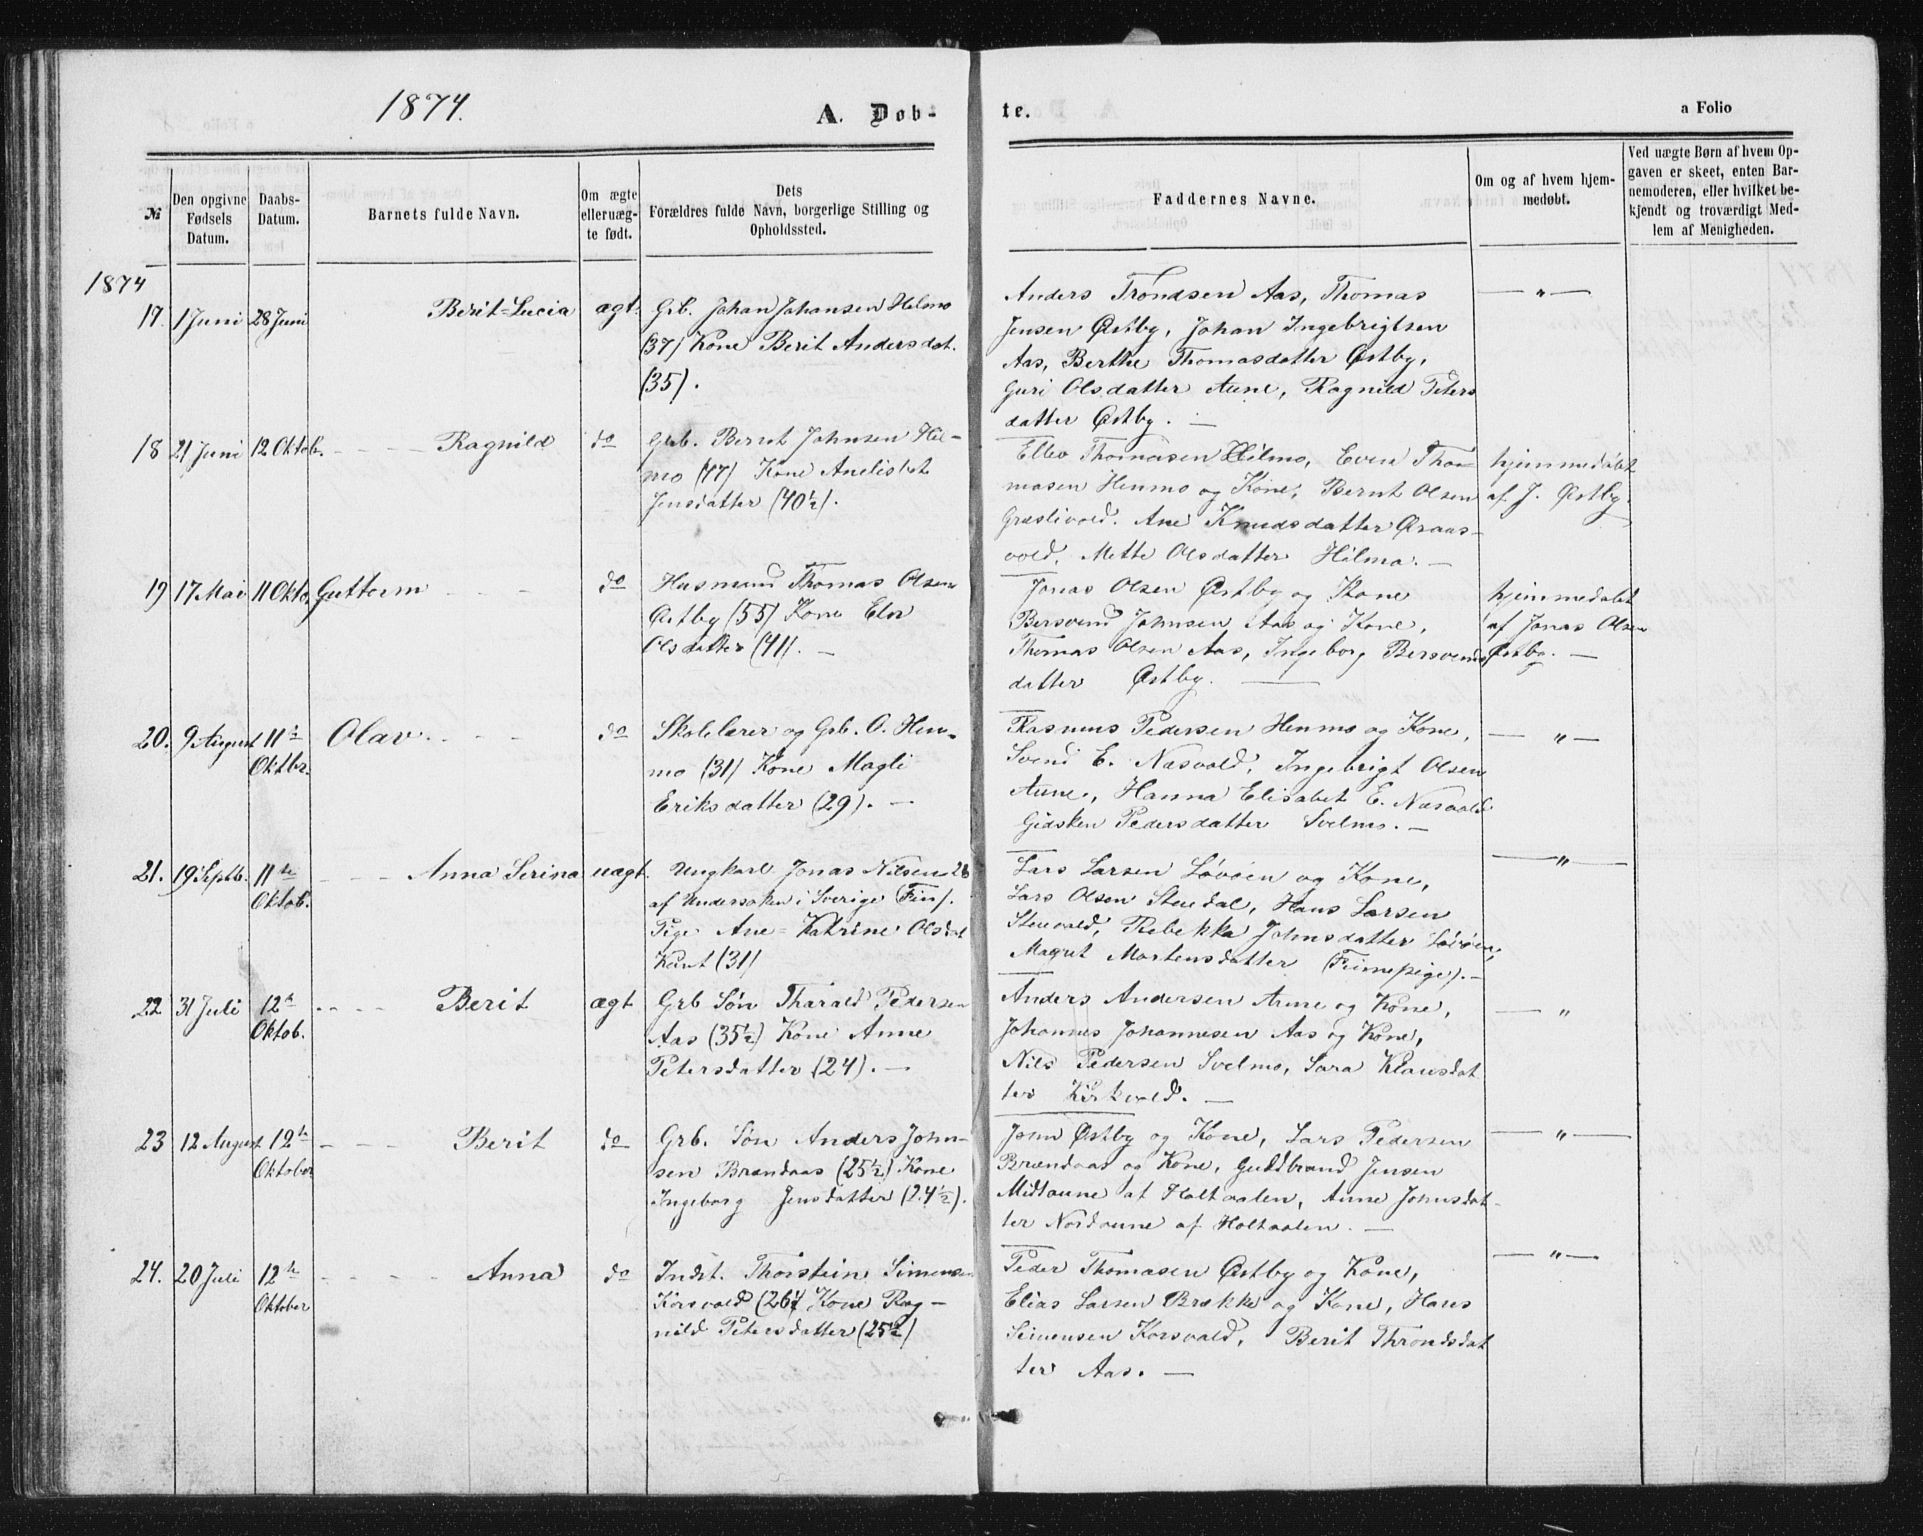 1874.
A. Døb-
te.
a Folio
№
Den opgivne
Fødsels
Datum.
Daabs-
Datum.
Barnets fulde Navn.
Om ægte
eller uæg-
te født.
Dets
Forældres fulde Navn, borgerlige Stilling og
Opholdssted.
Faddernes Navne.
Om og af hvem hjem-
medøbt.
Ved uægte Børn af hvem Op-
gaven er skeet, enten Bar-
nemoderen, eller hvilket be-
kjendt og troværdigt Med-
lem af Menigheden.
1874
17. 1 Juni 28 Juni Berit-Lucia ægt.
Grb. Johan Johansen Hilmo
(37) Kone Berit Andersdat.
(35).
Anders Trondsen Aas, Thomas
Jensen Østby, Johan Ingebrigtsen
Aas, Berthe Thomasdatter Østby,
Guri Olsdatter Aune, Ragnild Peters
datter Østby. —
— " —
18 21 Juni 12 Oktob. Ragnild do
Grb. Bernt Johnsen Hil-
mo (47) Kone Anelisbet
Jensdatter (40½).
Ellev Thomasen Hilmo, Even Tho-
masen Henmo og Kone, Bernt Olsen
Græslivold. Ane Knudsdatter
vold, Mette Olsdatter Hilmo. —
hjemmedøbt
af J. Østby.
19 17 Mai 11 Oktob. Guttorm do
Husmand Thomas Olsen
Østby (55) Kone Elen
Olsdatter (41). —
Jonas Olsen Østby og Kone
Bersvend Johnsen Aas og Kone,
Thomas Olsen Aas, Ingeborg Bersvends
datter Østby. —
hjemmedøbt
af Jonas Olsen
Østby. —
20. 9 August 11te
Oktbr.
Olav. do
Skolelærer og Grb. O. Hen-
mo (31) Kone Magli
Eriksdatter (29). —
Rasmus Pedersen Henmo og Kone,
Svend E. Næsvold, Ingebrigt Olsen
Aune, Hanna Elisabet E. Næsvold
Gidsken Pedersdatter Svelmo. —
— " —
21. 19 Septb. 11te
Oktob.
Anna Serina uægt.
Ungkarl Jonas Nilsen 28
af Undersaker i Sverige (Fin).
Pige Ane-Katrine Olsdat
Kant (31)
Lars Larsen Løvøen og Kone,
Lars Olsen Stuedal, Hans Larsen
Stuevold, Rebekka Johnsdatter Løvøen,
Magret Mortensdatter (Finnepige). —
— " —
22 31 Juli 12te
Oktob.
Berit ægt
Grb Søn Tharald Pedersen
Aas (35½) Kone Anne
Petersdatter (24). —
Anders Andersen Aune og Kone,
Johannes Johannesen Aas og Kone,
Nils Pedersen Svelmo, Sara Klausdat
ter Kirkvold. —
— "
23 12 August 12te
Oktober
Berit do
Grb. Søn Anders John-
sen Brændaas (25½) Kone
Ingeborg Jensdatter (24½).
John Østby og Kone, Lars Pedersen
Brændaas og Kone, Guldbrand Jensen
Midtaune af Holtaalen, Anne Johnsdat-
ter Nordaune af Holtaalen. —
— " —
24. 20 Juli 12te
Oktober
Anna do
Indst. Thorstein Simensen
Korsvold (26¼ Kone Rag-
nild Petersdatter (25½)
Peder Thomasen Østby og Kone,
Elias Larsen Brekke og Kone, Hans
Simensen Korsvold, Berit Throndsdat
ter Aas. —
— " —